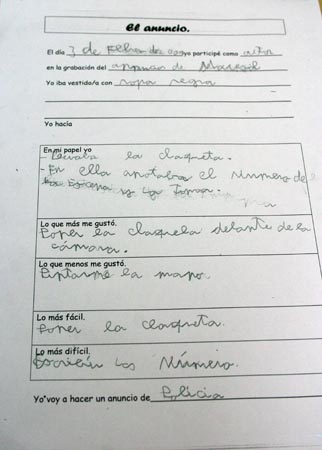 El anuncio.
El día 3 de Febrero yo participé como actor
en la grabación del anuncio de
Yo iba vestido/a con ropa negra
Yo hacía
En mi papel yo
- Llevaba la claqueta.
- En ella anotaba el número de
la Escena y la toma.
Lo que más me gustó.
Poner la claqueta delante de la
cámara.
Lo que menos me gustó.
Pintarme la mano.
Lo más fácil.
Poner la claqueta.
Lo más difícil.
Escribir los Número.
Yo voy a hacer un anuncio de Policia